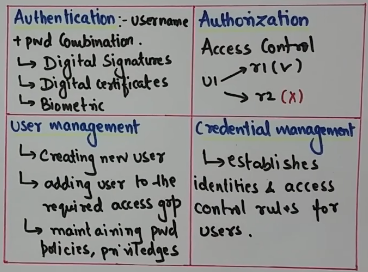 Authentication :- username
+ pwd Combination.
↳ Digital Signatures
↳ Digital certificates
↳ Biometric
Authorization
Access Control
U1 → r1 (✓)
→ r2 (X)
User management
↳ Creating new user
↳ adding user to the
required access grp
↳ maintaining pwd
policies, priviledges
Credential management
↳ establishes
identities & access
control rules for
users.